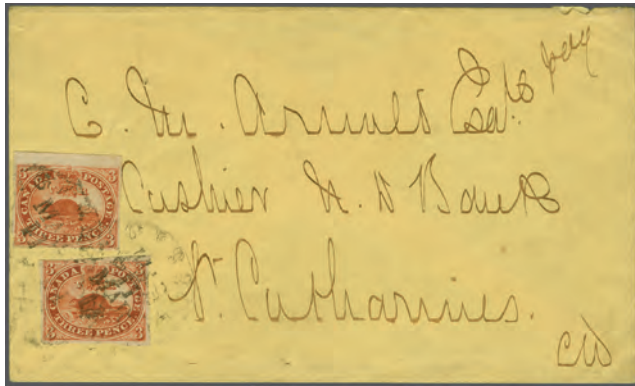 C. M. Arnold Esq.
Cashier N. D Bank
St. Catharines.
CW
CANADA POSTAGE
THREE PENCE
CANADA POSTAGE
THREE PENCE